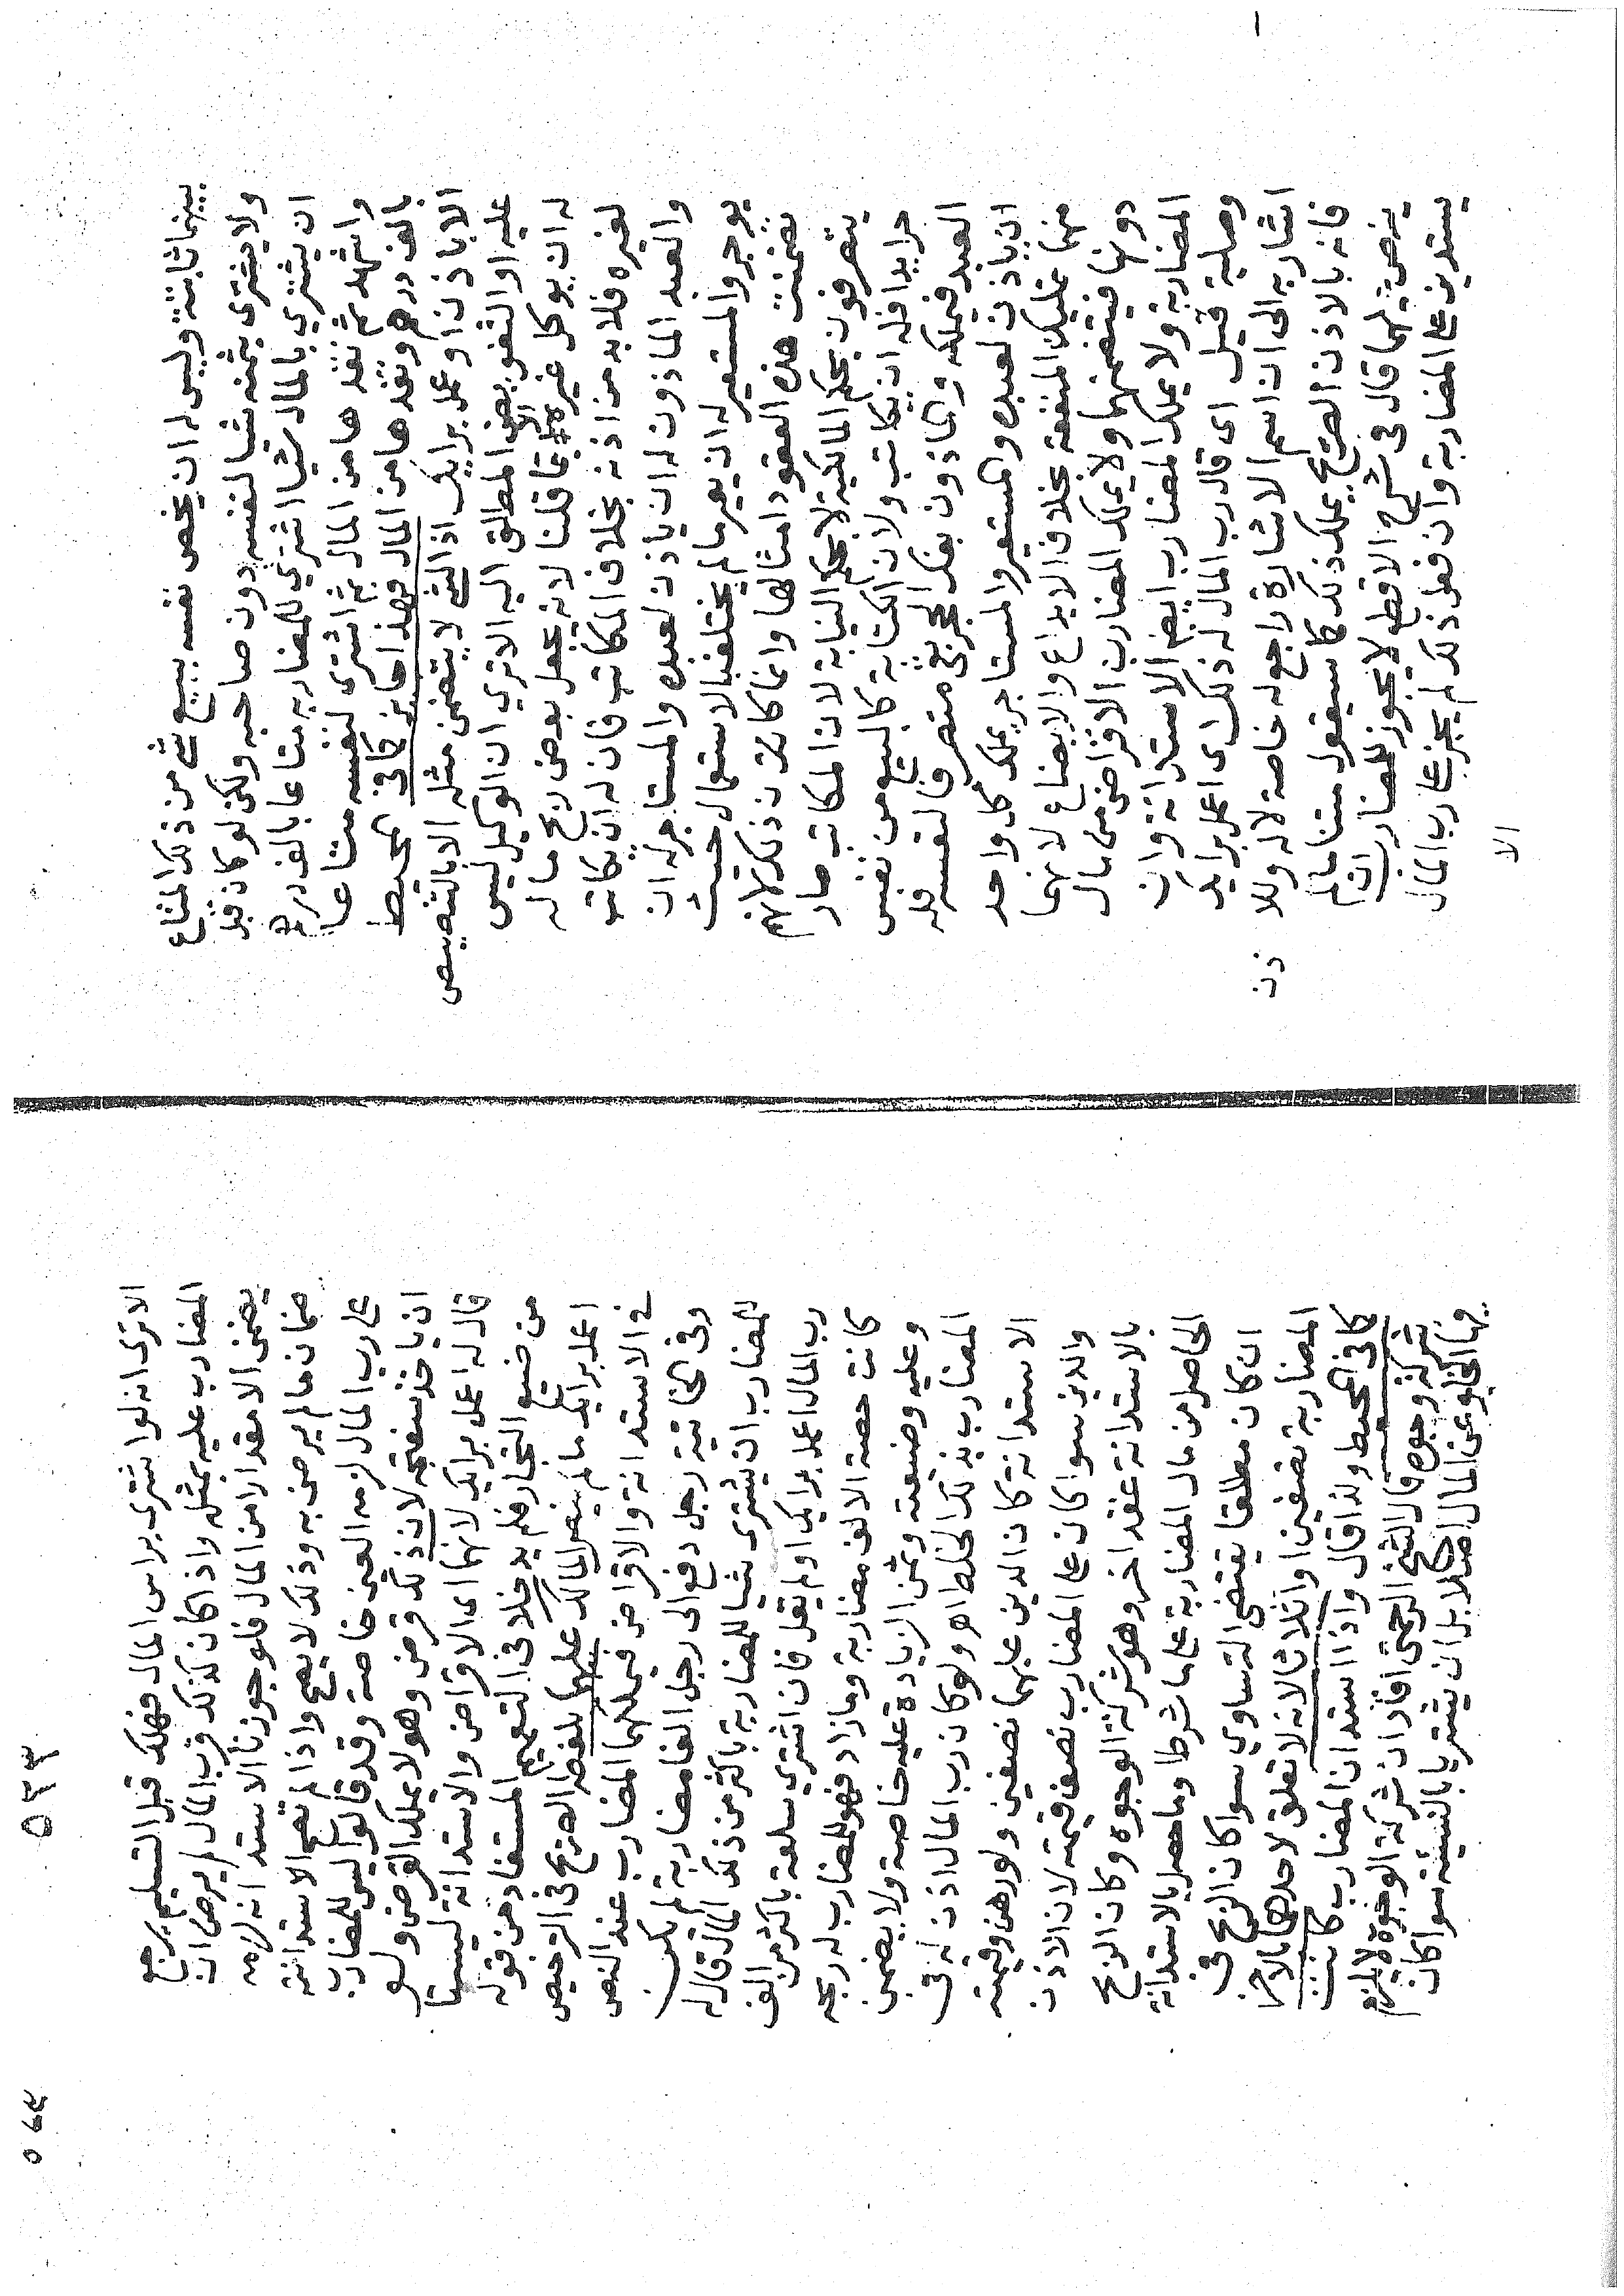 بينهما ثابتة وليس له ان يخص نفسه ببيع شي من ذلك المتاع
ولا يشترى بثمنه شيا لنفسه دون صاحبه ولكن لو كان قبل
ان يشتري بالمال شيا اشتري للمضاربه متاعا بالف درهم
واشهد ثم نقدها من المال ثم اشترى لنفسه متاعا
بالف درهم ونقدها من المال فهذا جايز كما فى المحيط
الا باذن او عمل برايك اذ الشي لا يتضمن مثله الا بالتنصيص
عليه او التفويض المطلق اليه الا ترى ان الوكيل ليس
له ان يوكل غيره الا بما قلنا لانه يجعل بعض ربح ماله
لغيره فلا بد من اذنه بخلاف المكاتب فان له ان يكاتب
والعبد الماذون له ان ياذن لعبده والمستاجر له ان
يوجر والمستعير له ان يعير مالم يختلف بالاستعمال حيث
تضمنت هذه العقود امثالها وانما كان ذلك لانهم
يتصرفون بحكم المالكية لا بحكم النيابة لان المكاتب صار
حرا يدا فله ان يكاتب ولان الكتابة كالبيع من نفس
العبد فيملكه والماذون بفك الحجر بقى متصرفا لنفسه فله
ان ياذن لعبده والمستعير والمستاجر يملك كل واحد
منهما تمليك المنفعة بخلاف الايداع والابضاع لانهما
دونها فيتضمنهما ولا يملك المضارب الاقراض من مال
المضاربة ولا يملك المضارب ايضا الاستدانة وان
وصلية قيل اى قال رب المال له ذلك اى اعمل برايك
اشار به الى ان اسم الاشارة راجع له خاصة لا له وللاذن
فانه بالاذن الصريح يملك ذلك كما سيقول متنا مالم
ينص عليهما قال فى شرح الاقطع لا يجوز للمضارب ان
يستدين على المضاربة وان فعل ذلك لم يجز على رب المال
الا
الا ترى انه لو اشترى براس المال فهلك قبل التسليم يرجع
المضارب عليه بمثله واذا كان كذلك فرب المال لم يرض ان
يضمن الا مقدارا من المال فلو جوزنا الاستدانه لزمه
ضمان مالم يرض به وذلك لا يصح واذا لم تصح الاستدانة
على رب المال لزمه العين خاصة وقد قالوا ليس للمضارب
ان ياخذ سفتجه لان ذلك قرض وهو لا يملك القرض ولو
قال له اعمل برايك لانهما اى الاقراض والاستدانة ليستا
من ضيع التجار فلم يدخلا فى التعميم المستفاد من قوله
اعمل برايك مالم ينص المالك عليهما بلفظ الصريح فى الترخيص
فى الاستدانة والاقراض فيملكهما المضارب عند النص
وفى الخانية رجل دفع الى رجل الفا مضاربة لم يكن
للمضارب ان يشترى شيا للمضاربة باكثر من ذلك المال قال له
رب المال اعمل برايك اولم يقل فان اشترى سلعة باكثر من الف
كانت حصة الالف مضاربة وما زاد فهو للمضارب له ربحه
وعليه وضيعته وثمن الزيادة عليه خاصة ولا يضمن
المضارب بذلك الخلط اهـ ولو كان رب المال اذن له فى
الاستدانة كان الدين عليهما نصفين ولو رهن وقيمته
والدين سوا كان على المضارب نصف قيمته لان الاذن
بالاستدانة عقد اخر وهو شركة الوجوه وكان الربح
الحاصل من مال المضاربة على ما شرطا وما حصل بالاستدانة
ان كان مطلقا يقتضى التساوي سوا كان الربح فى
المضاربة نصفين او اثلاثا لانه لا تعلق لاحدهما بالاخر
كما فى المحيط ولذا قال واذا استدان المضارب كانت
شركة وجوه قال الشيخ الرحمتى افاد ان شركة الوجوه لا يلزم
فيها الخلو عن المال اصلا بل ان يشتريا بالنسيئة سوا كان
٥٣٣